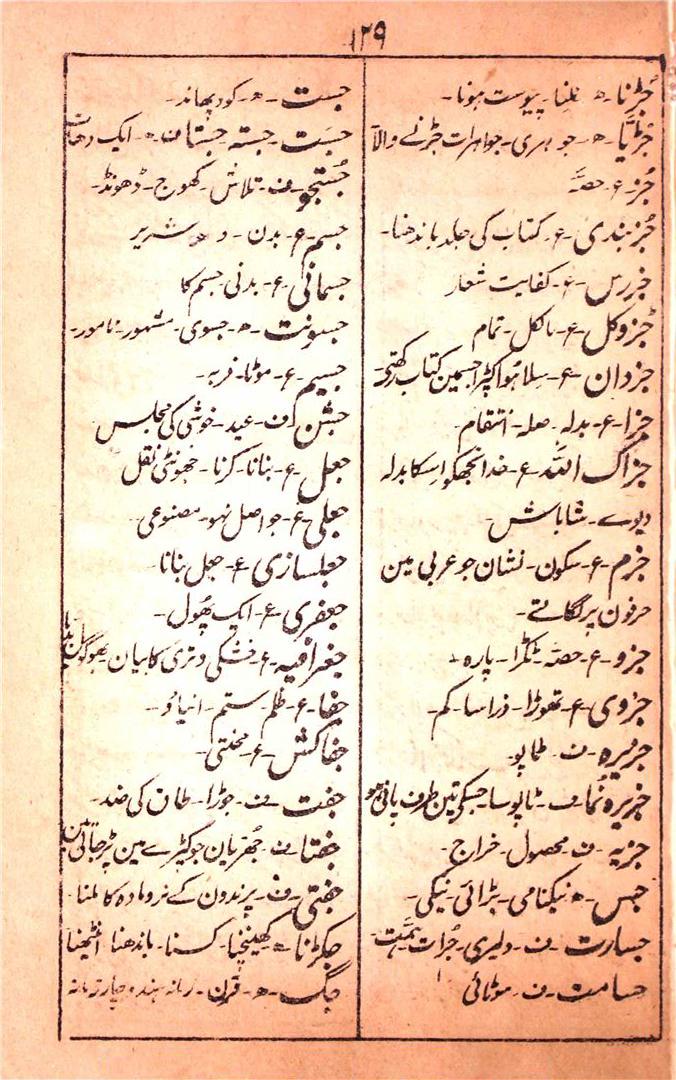 ۱۲۹
جُڑنا۔ ھ۔ مِلنا۔ پیوست ہونا۔
جُڑیّا۔ ھ۔ جوہری۔ جواہرات جڑنے والا
جُز۔ ع۔ حصّہ
جُزبندی۔ ع۔ کتاب کی جلد باندھنا۔
جزرس۔ ع۔ کفایت شعار
جُزوکل۔ ع۔ بالکل۔ تمام
جزدان۔ ع۔ سِلا ہوا کپڑا جسمین کتاب رکھتے
جزا۔ ع۔ بدلہ۔ صلہ۔ انتقام۔
جزاک اللہ۔ ع۔ خدا تجھکو اسکا بدلہ
دیوے۔ شاباش۔
جزم۔ ع۔ سکون۔ نشان جو عربی مین
حرفون پر لگاتے۔
جزو۔ ع۔ حصّہ۔ ٹکڑا۔ پارہ۔
جزوی۔ ع۔ تھوڑا۔ ذراسا۔ کم۔
جزیرہ۔ ف۔ ٹاپو۔
جزیرہ نُما۔ ف۔ ٹاپوسا۔ جسکی تین طرف پانی ہو
جزیہ۔ ف۔ محصول۔ خراج۔
جس۔ ھ۔ نیکنامی۔ بڑائی۔ نیکی۔
جسارت۔ ف۔ دلیری۔ جُرات۔ ہمّت۔
جسامت۔ ف۔ موٹائی
جست۔ ھ۔ کود پھاند۔
جست۔ جستہ۔ جستا۔ ھ۔ ایک دھات
جُستجو۔ ف۔ تلاش۔ کھوج۔ ڈھونڈ۔
جسم۔ ع۔ بدن۔ دھ۔ شریر
جسمانی۔ ع۔ بدنی۔ جسم کا
جسونت۔ ھ۔ جسوی۔ مشہور۔ نامور۔
جسیم۔ ع۔ موٹا۔ فربہ۔
جشن۔ ف۔ عید۔ خوشی کی مجلس
جعل۔ ع۔ بنانا۔ کرنا۔ جھوٹی نقل
جعلی۔ ع۔ جو اصل نہو۔ مصنوعی۔
جعلسازی۔ ع۔ جعل بنانا۔
جعفری۔ ع۔ ایک پھُول۔
جغرافیہ۔ ع۔ خشکی و تری کا بیان۔ بھوگول
جفا۔ ع۔ ظلم۔ ستم۔ انیاؤ۔
جفاکش۔ ع۔ محنتی۔
جفت۔ ف۔ جوڑا۔ طاق کی ضد۔
جفتا۔ ف۔ جھُریان جو کپڑے مین پڑجاتی ہین
جفتی۔ ف۔ پرندون کے نر و مادہ کا ملنا۔
جکڑنا۔ ھ۔ کھینچنا۔ کسنا۔ باندھنا۔ اینٹھنا
جگ۔ ھ۔ قرن۔ زمانہ